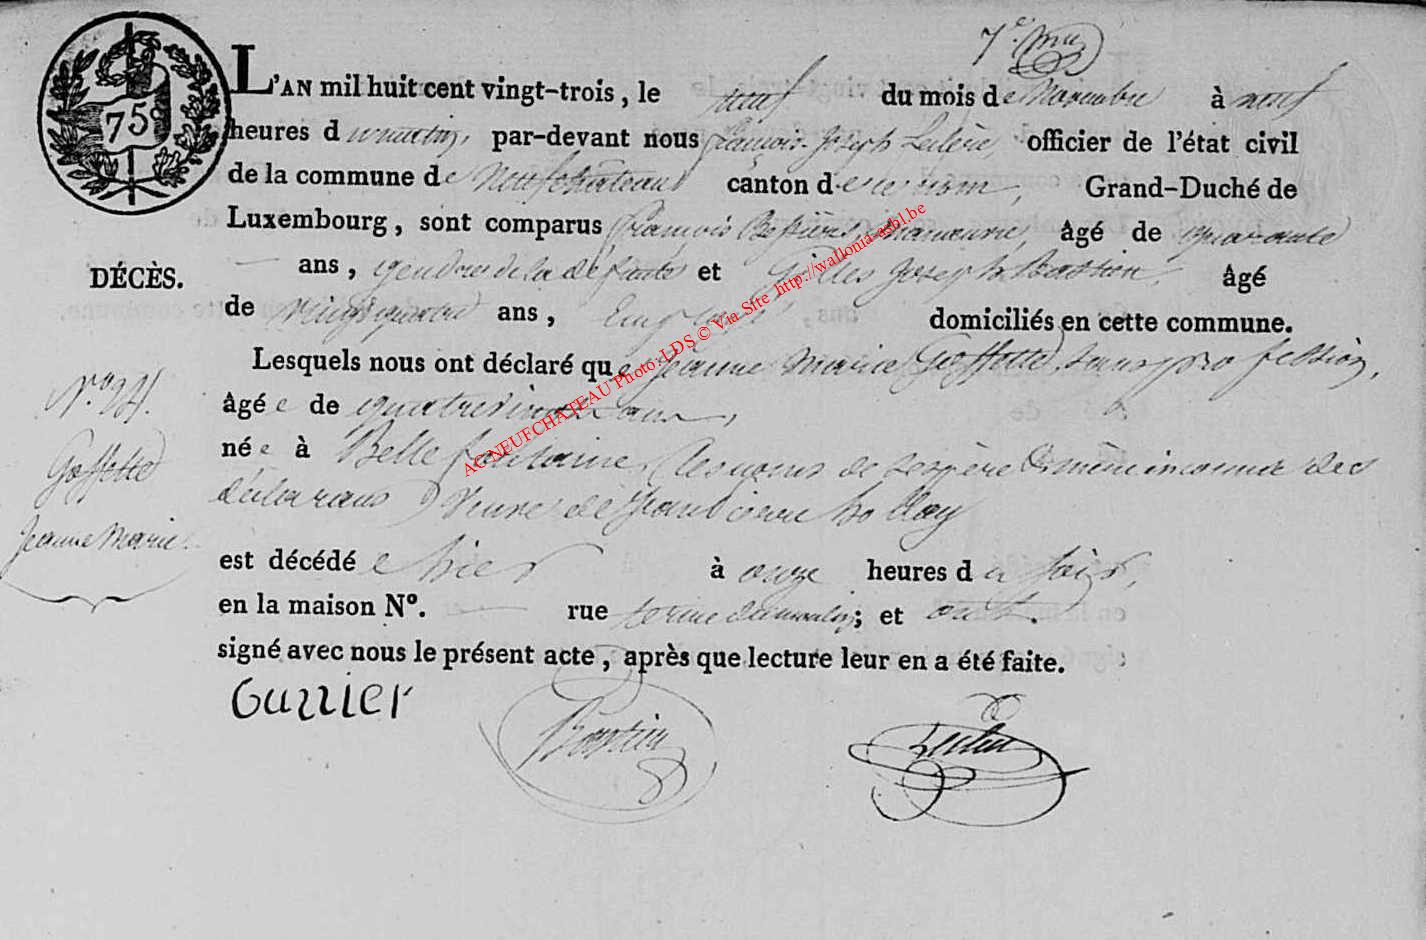 7e.
75c
L'AN mil huit cent vingt-trois, le neuf du mois de Novembre à neuf
heures du matin, par-devant nous François Joseph Leclère, officier de l'état civil
de la commune de Neufchateau canton de ce nom, Grand-Duché de
Luxembourg, sont comparus François manœuvre, âgé de quarante
ans, gendre de la défunte et Gilles Joseph Bastien, âgé
DÉCÈS.
de vingt quatre ans, Employé domiciliés en cette commune.
Lesquels nous ont déclaré que Jeanne Marie Goffette, sans profession,
âgée de quatrevingt ans,
née à Belle fontaine, les noms de ses père & mère inconnus des
déclarans, veuve de
N°.
Goffette
Jeanne Marie
est décédée hier à onze heures du soir,
en la maison N°. rue ; et ont
signé avec nous le présent acte, après que lecture leur en a été faite.
Bastien
Leclère
AC NEUFCHATEAU Photo: LDS © Via Site http://wallonia-asbl.be